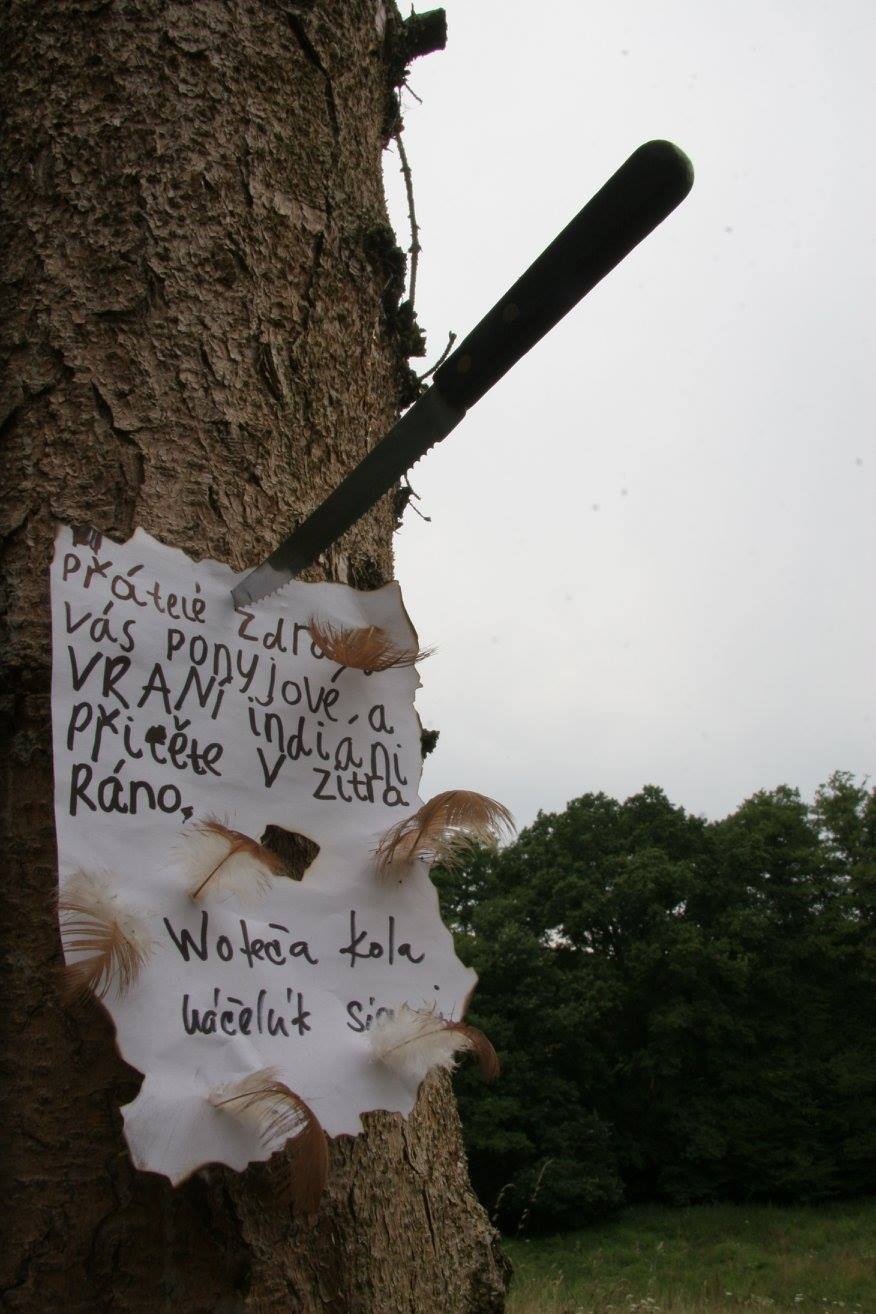 přátelé
vás ponyjové a
VRANÍ indiáni
přiťěte v zítra
Ráno,
Woteča kola
náčelník